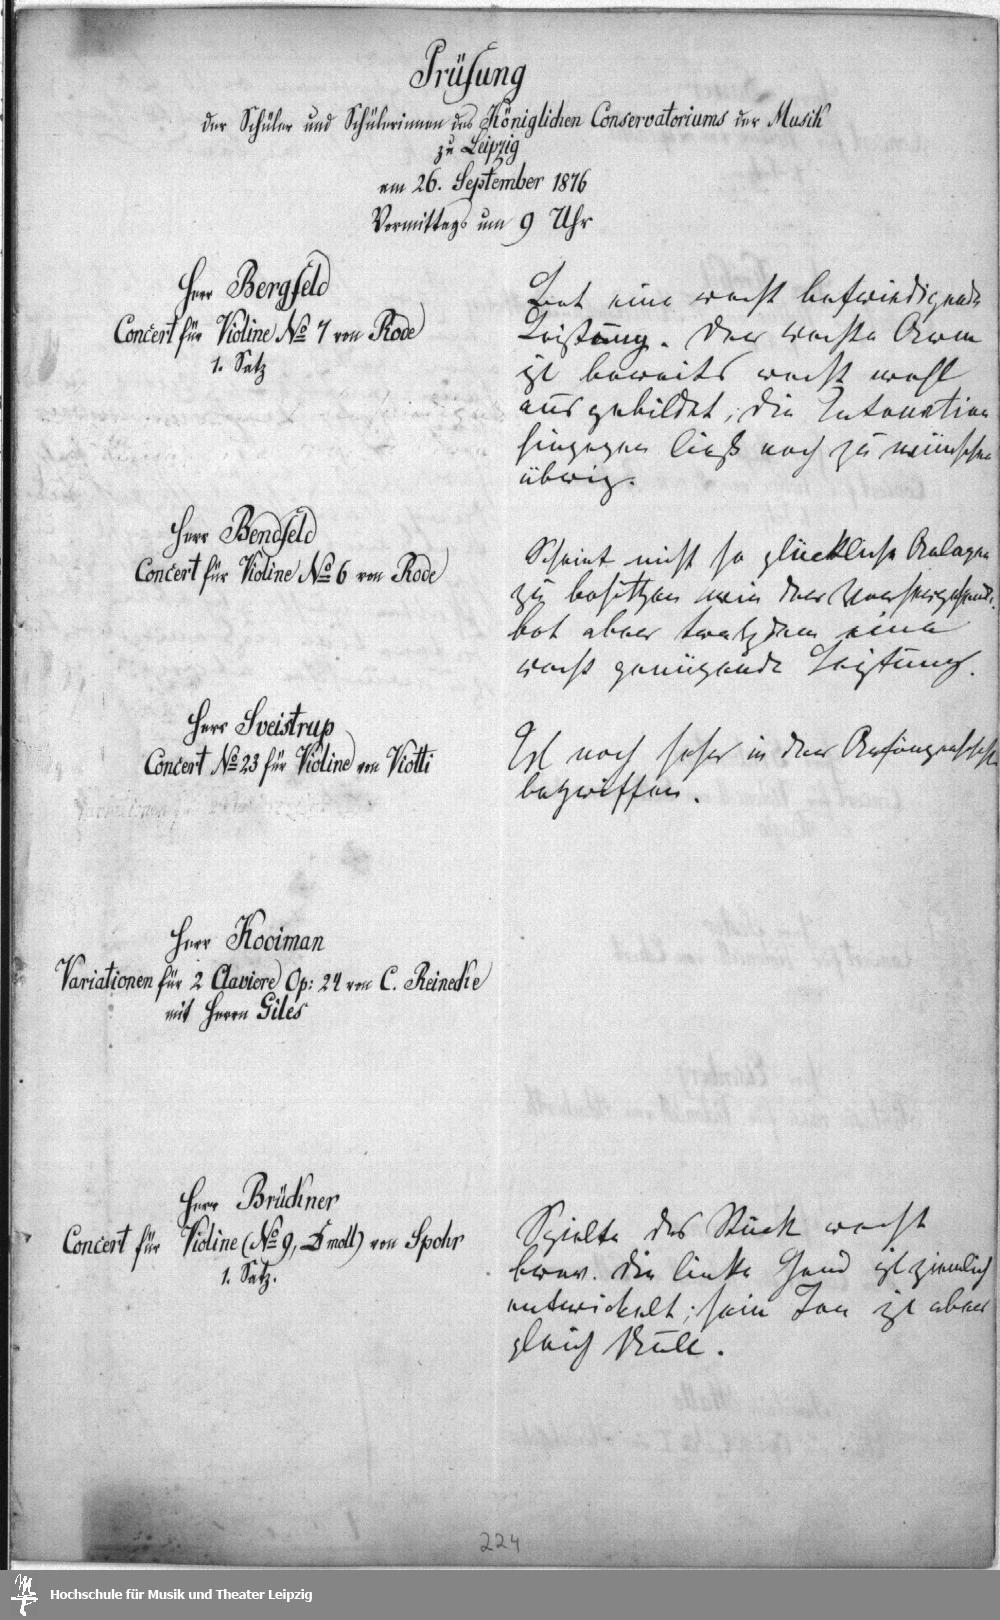 Prüfung
der Schüler und Schülerinnen des Königlichen Conservatoriums der Musik
zu Leipzig
am 26. September 1876
Vormittags um 9 Uhr
Herr Bergfeld
Concert für Violine No 7 von Rode
1. Satz
Bot eine recht befriedigende
Leistung. Der rechte Arm
ist bereits recht wohl
ausgebildet; die Intonation
hingegen ließ noch zu wünschen
übrig.
Herr Bendfeld
Concert für Violine No 6 von Rode
Scheint nicht so glückliche Anlagen
zu besitzen wie der
bot aber trotzdem eine
recht genügende Leistung.
Herr Sveistrup
Concert No 23 für Violine von Viotti
Ist noch sehr in der
begriffen.
Herr Kooiman
Variationen für 2 Claviere Op: 24 von C. Reinecke
mit Herrn Giles
Herr Brückner
Concert für Violine (No 9, D moll) von Spohr
1. Satz.
Spielte das Stück recht
brav. Die linke Hand ist ziemlich
entwickelt; sein Ton ist aber
gleich Null.
224
Hochschule für Musik und Theater Leipzig